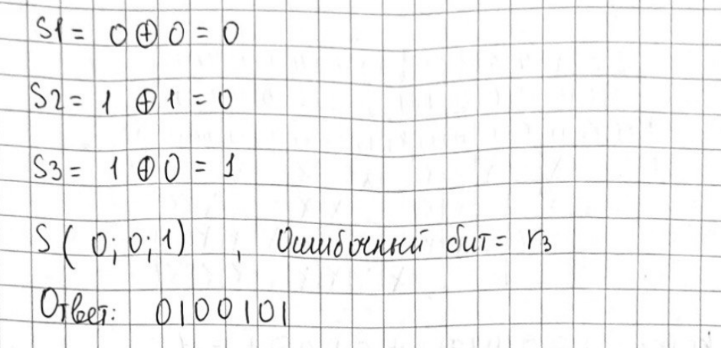 S1 = 0 ⊕ 0 = 0
S2 = 1 ⊕ 1 = 0
S3 = 1 ⊕ 0 = 1
S ( 0; 0; 1 ) , Ошибочный бит = r₃
Ответ: 0100101